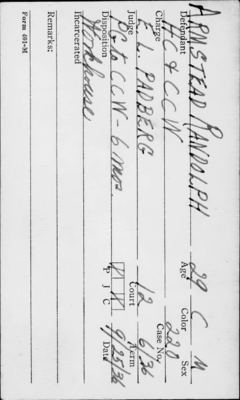 ARMSTEAD RANDOLPH 29 C M
Defendant Age Color Sex
H & CCW 220
Charge Case No.
E. L. PADBERG 12 6/36
Judge Court Term
PG to CCW - 6 mos. X X 9/25/36
Disposition P J C Date
Workhouse
Incarcerated
Remarks:
Form 601-M